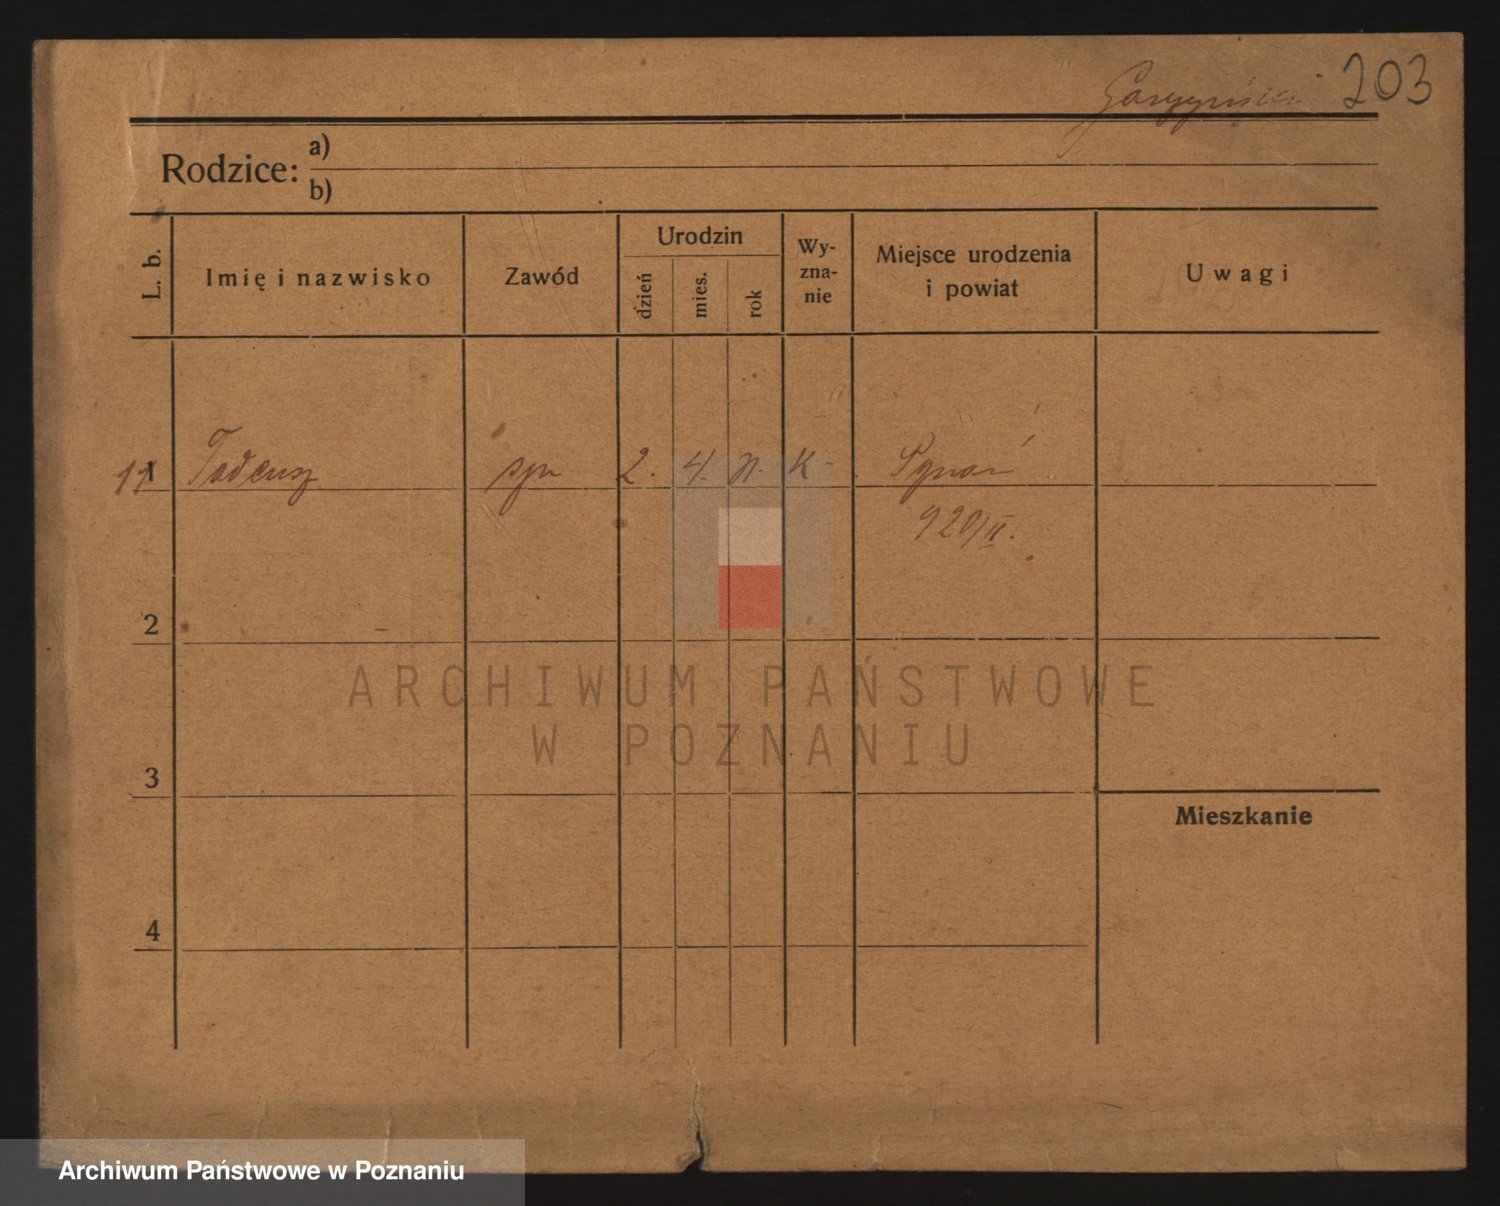 203
Rodzice: a)
b)
L. b. Imię i nazwisko Zawód Urodzin dzień mies. rok Wy-zna-nie Miejsce urodzenia i powiat Uwagi
11 Tadeusz syn 2. 4. K-
1
920/II.
2
3
Mieszkanie
4
ARCHIWUM PAŃSTWOWE
W POZNANIU
Archiwum Państwowe w Poznaniu